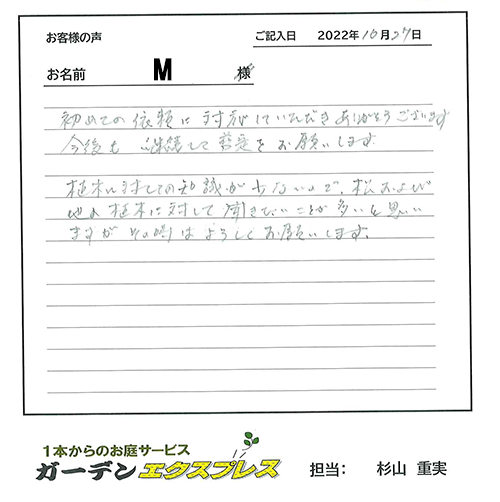 お客様の声
ご記入日 2022年10月27日
お名前 M 様
初めての依頼に対応していただきありがとうございます
今後も 継続して 剪定を お願いします。
植木に対しての知識が少ないので、松および
他の植木に対して聞きたいことが多いと思い
ますが その時はよろしくお願いします。
1本からのお庭サービス
ガーデンエクスプレス
担当: 杉山 重実